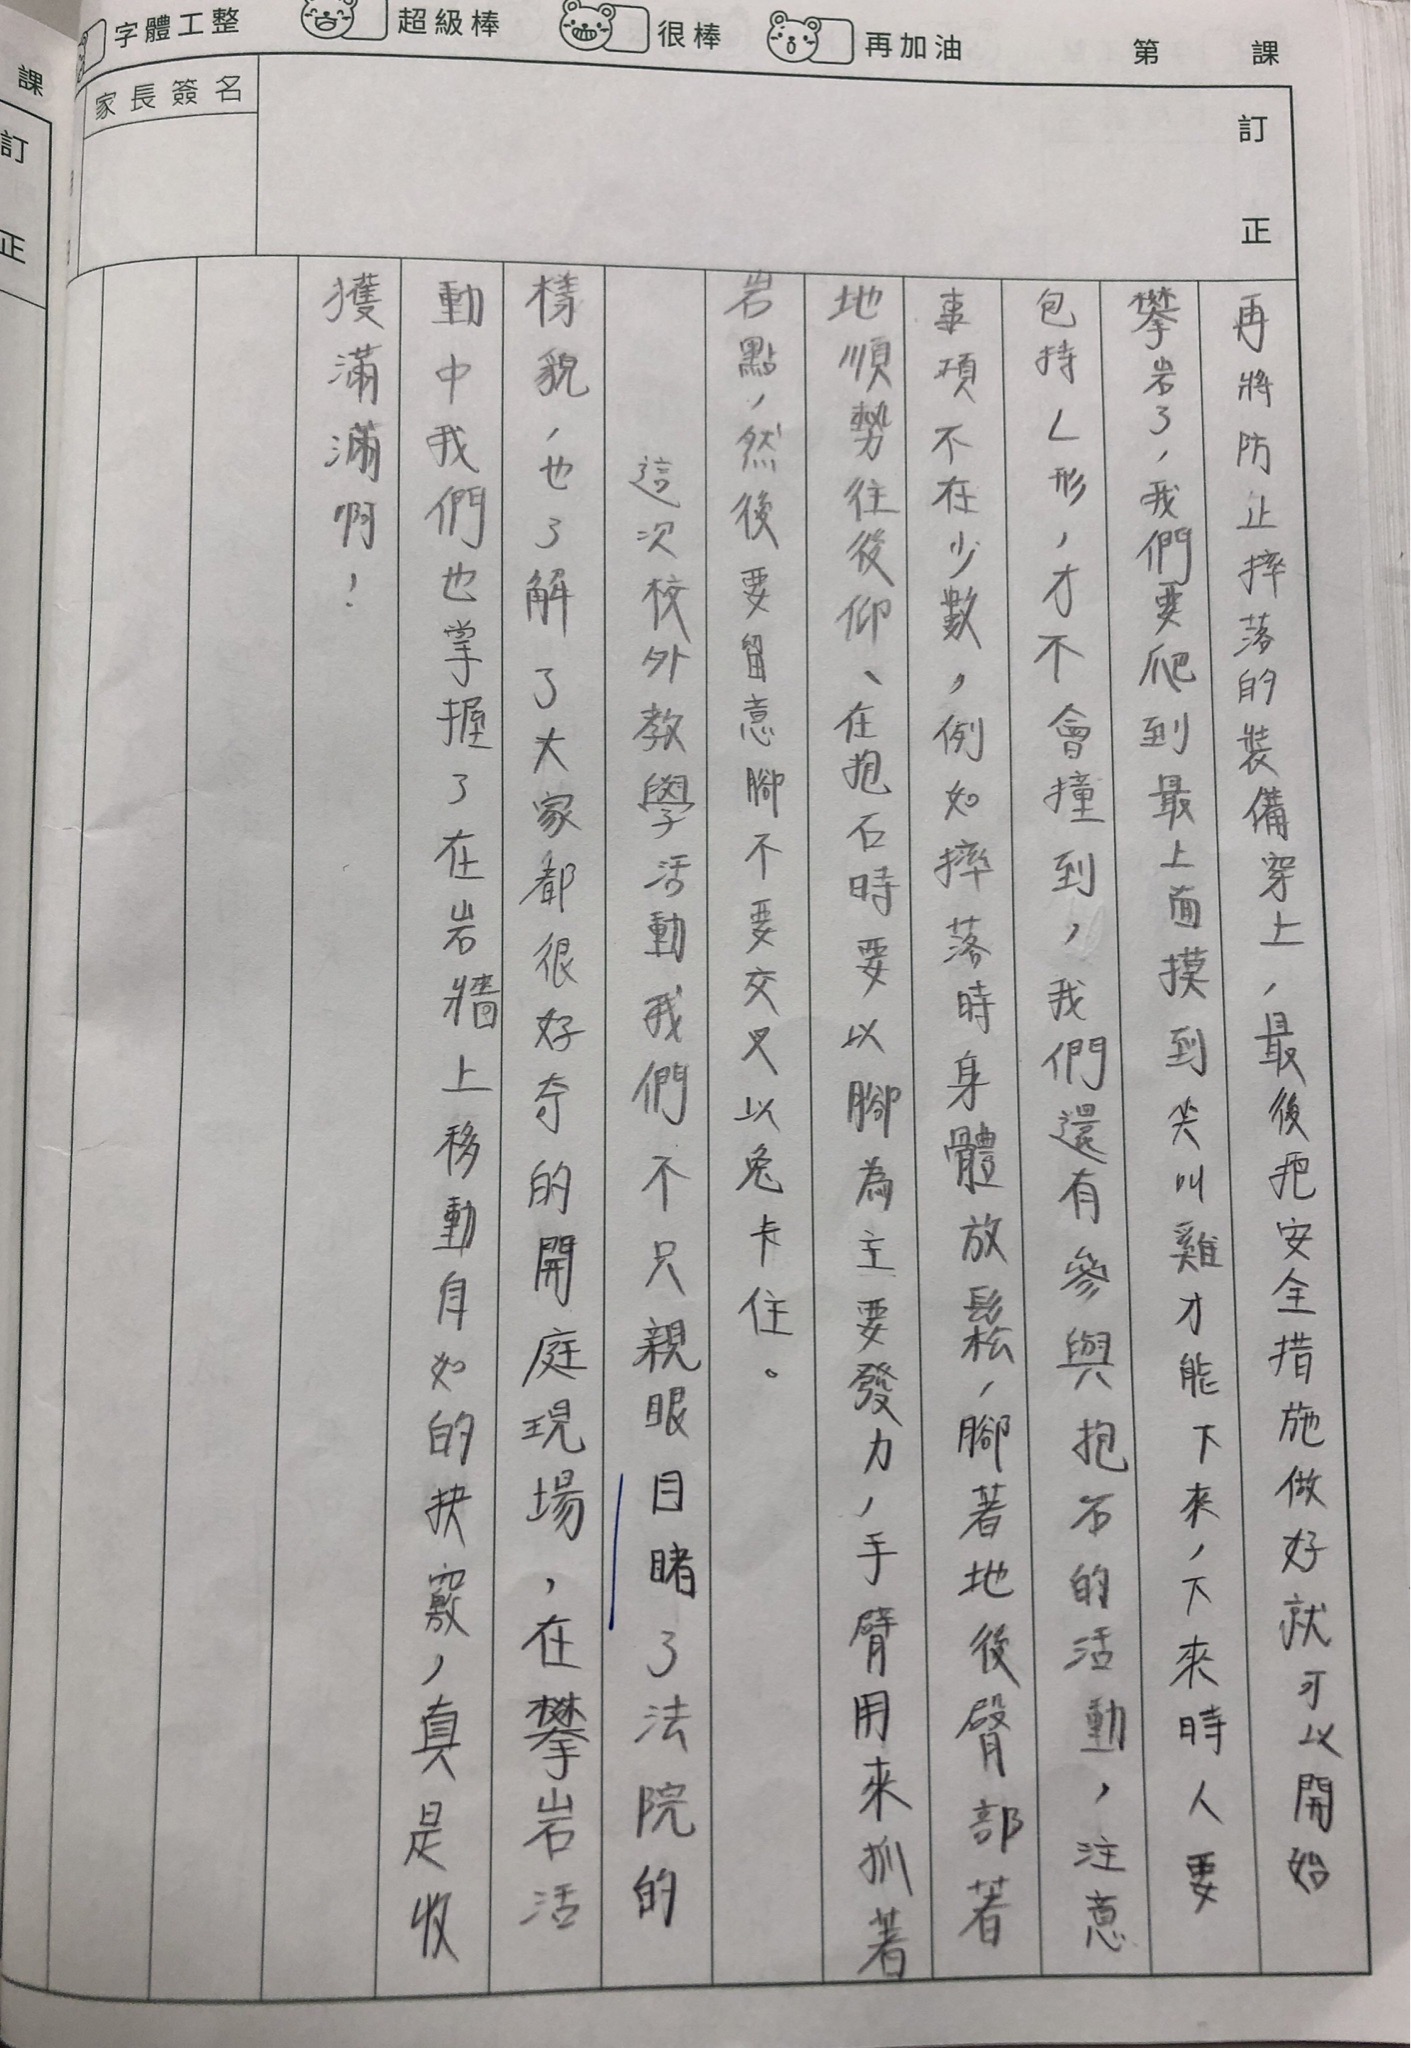 字體工整 超級棒 很棒 再加油 第 課
課
訂正
家長簽名
訂正
再將防止摔落的裝備穿上,最後把安全措施做好就可以開始
攀岩了,我們要爬到最上面摸到尖叫雞才能下來,下來時人要
包持L形,才不會撞到,我們還有參與抱石的活動,注意
事項不在少數,例如摔落時身體放鬆,腳著地後臀部著
地順勢往後仰、在抱石時要以腳為主要發力,手臂用來抓著
岩點,然後要留意腳不要交叉以兔卡住。
這次校外教學活動我們不只親眼目睹了法院的
樣貌,也了解了大家都很好奇的開庭現場,在攀岩活
動中我們也掌握了在岩牆上移動自如的抉竅,真是收
獲滿滿啊!